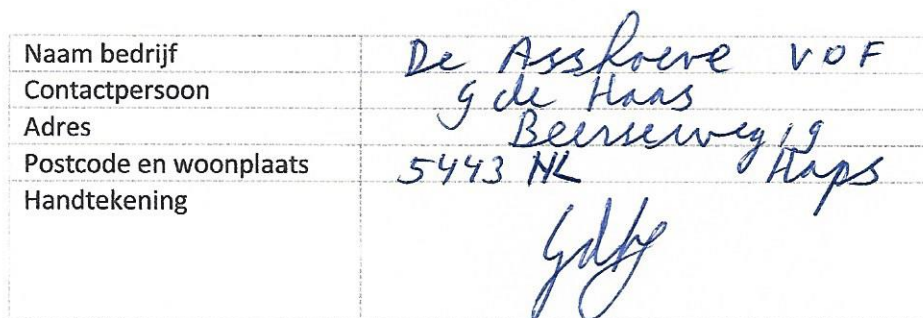 Naam bedrijf De Asshoeve VOF
Contactpersoon G de Haas
Adres Beerseweg 19
Postcode en woonplaats 5443 NL Haps
Handtekening